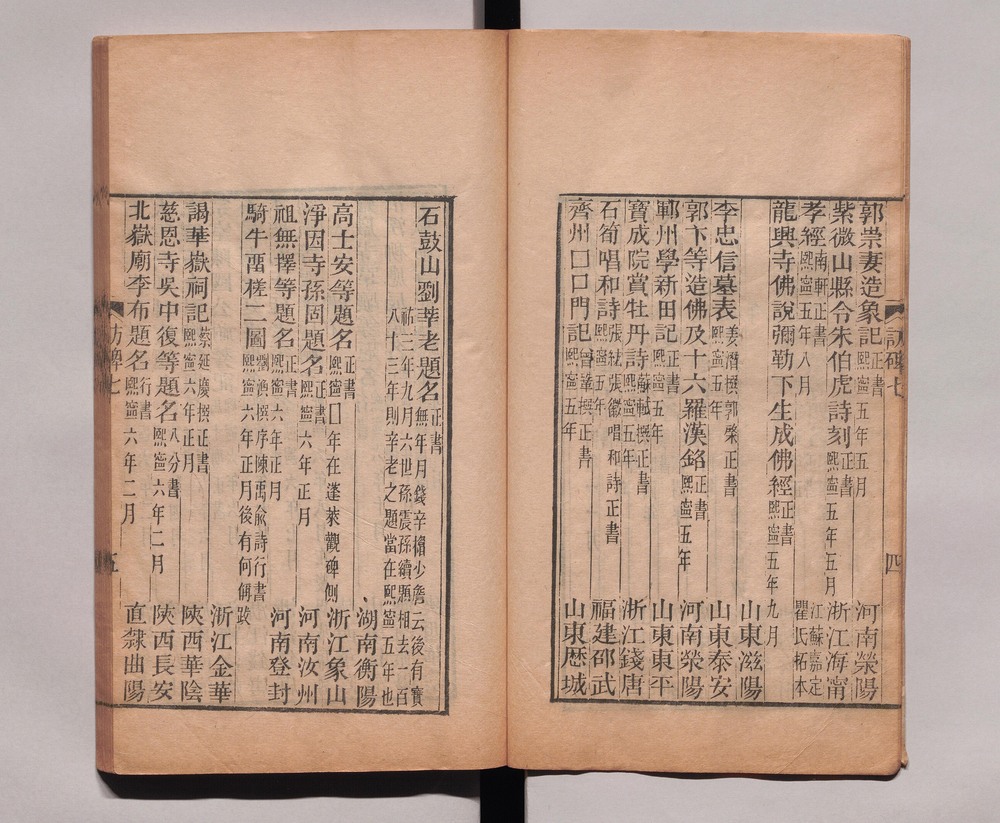 郭崇妻造象記 正書 熙寧五年五月 河南滎陽
紫微山縣令朱伯虎詩刻 正書 熙寧五年五月 浙江海甯
孝經 南軒正書 熙寧五年八月 江蘇嘉定瞿氏拓本
龍興寺佛說彌勒下生成佛經 正書 熙寧五年九月 山東滋陽
李忠信墓表 姜潛撰郭槩正書 熙寧五年 山東泰安
郭卞等造佛及十六羅漢銘 正書 熙寧五年 河南滎陽
鄆州學新田記 正書 熙寧五年 山東東平
寶成院賞牡丹詩 蘇軾撰正書 熙寧五年 浙江錢唐
石筍唱和詩 張紘張徽唱和詩正書 熙寧五年 福建邵武
齊州囗囗門記 曾鞏撰正書 熙寧五年 山東歷城
訪碑七
四
石鼓山劉莘老題名 正書 無年月錢辛楣少詹云後有寶祐三年九月六世孫震孫續題相去一百八十三年則辛老之題當在熙寧五年也 湖南衡陽
高士安等題名 正書 熙寧囗年在蓬萊觀碑側 浙江象山
淨因寺孫固題名 正書 熙寧六年正月 河南汝州
祖無擇等題名 正書 熙寧六年正月 河南登封
騎牛啇槎二圖 劉渙撰序陳禹俞詩行書 熙寧六年正月後有何偁跋 浙江金華
謁華嶽祠記 蔡延慶撰正書 熙寧六年正月 陝西華陰
慈恩寺吳中復等題名 八分書 熙寧六年二月 陝西長安
北嶽廟李布題名 行書 熙寧六年二月 直隸曲陽
訪碑七
五